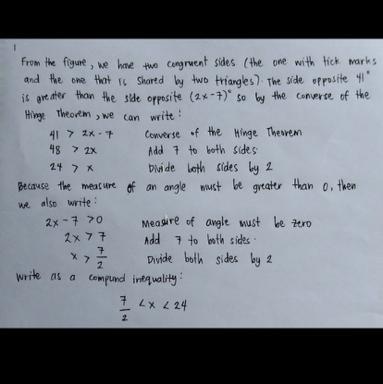 1
From the figure, we have two congruent sides (the one with tick marks
and the one that is shared by two triangles). The side opposite 41°
is greater than the side opposite (2x-7)° so by the converse of the
Hinge Theorem, we can write:
41 > 2x-7 Converse of the Hinge Theorem
48 > 2x Add 7 to both sides
24 > x Divide both sides by 2
Because the measure of an angle must be greater than 0, then
we also write:
2x-7 >0 Measure of angle must be zero
2x > 7 Add 7 to both sides.
x > 7/2 Divide both sides by 2
Write as a compund inequality:
7/2 < x < 24